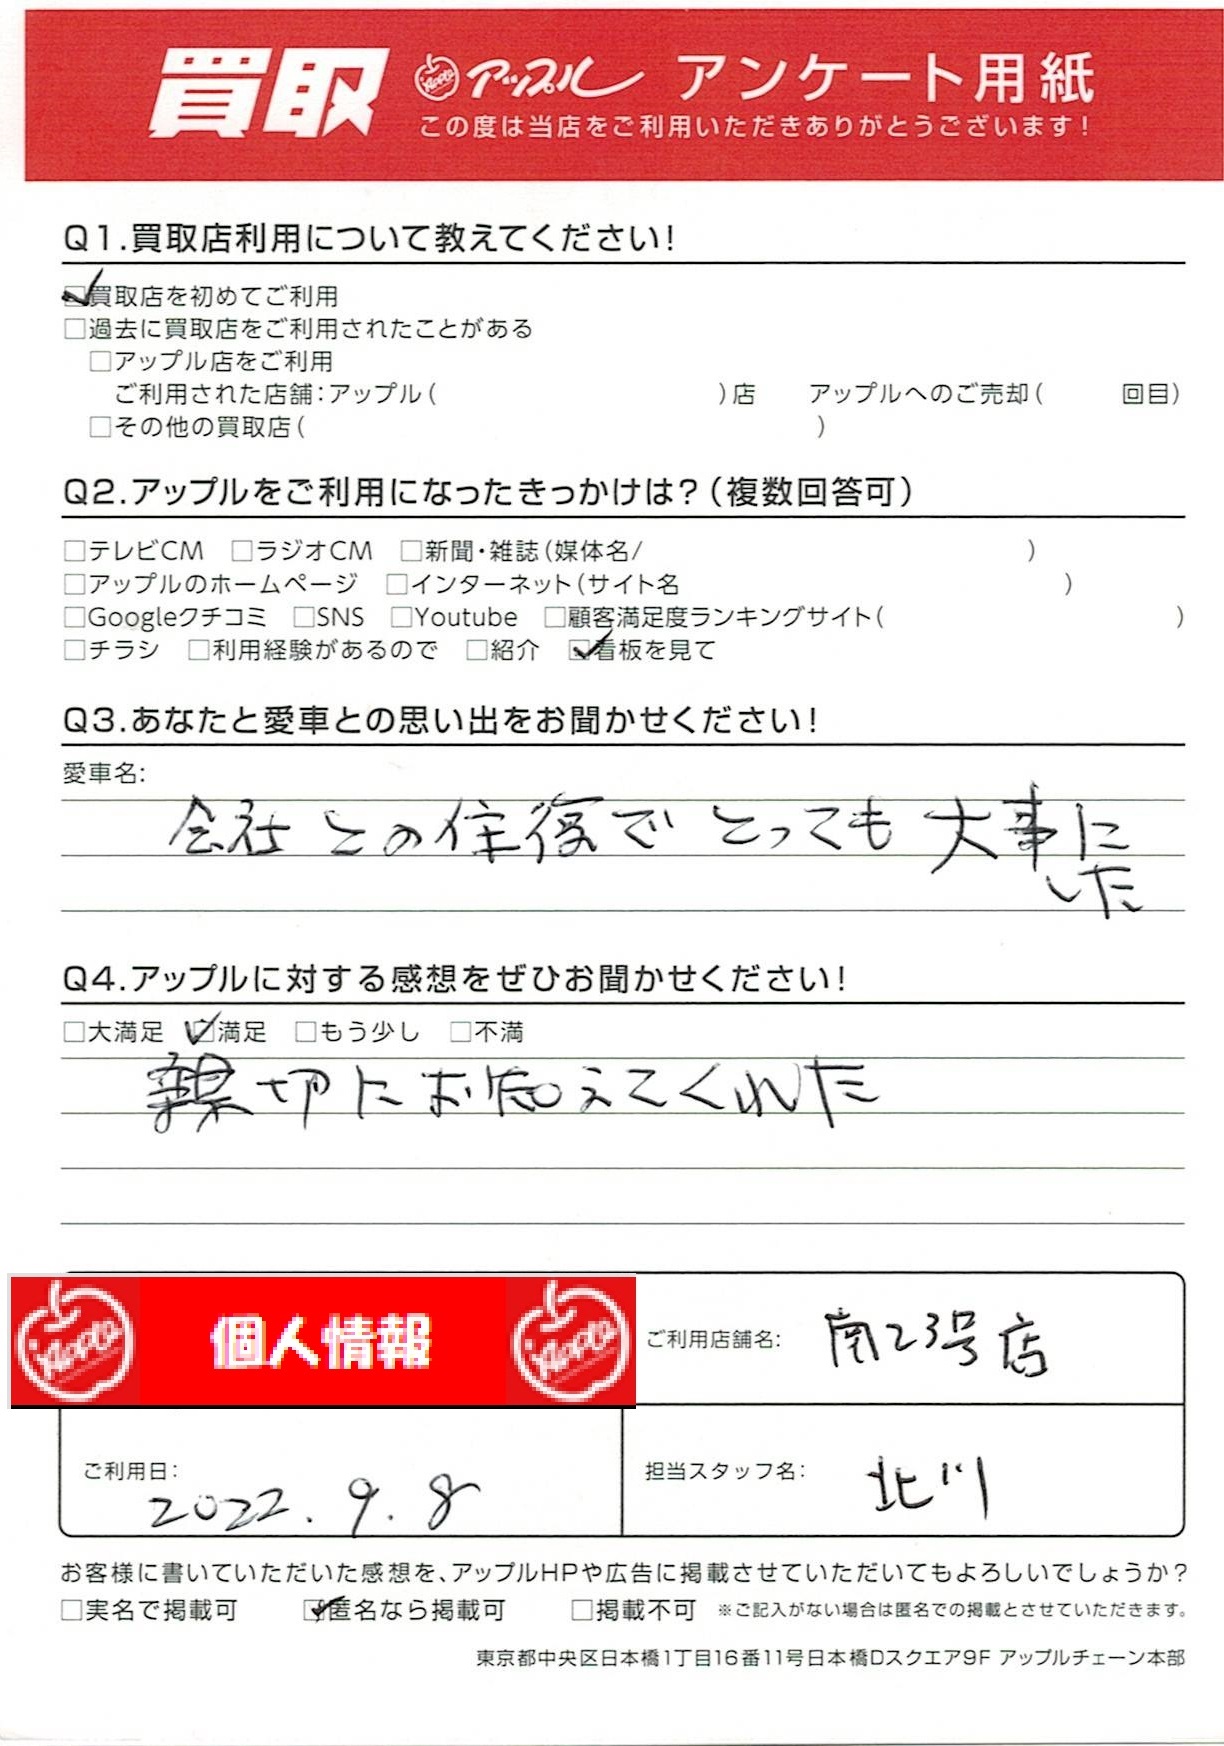 買取 Apple アップル アンケート用紙
この度は当店をご利用いただきありがとうございます!
Q1.買取店利用について教えてください!
☑買取店を初めてご利用
□過去に買取店をご利用されたことがある
□アップル店をご利用
ご利用された店舗:アップル( )店 アップルへのご売却( 回目)
□その他の買取店( )
Q2.アップルをご利用になったきっかけは?(複数回答可)
□テレビCM □ラジオCM □新聞・雑誌(媒体名/ )
□アップルのホームページ □インターネット(サイト名 )
□Googleクチコミ □SNS □Youtube □顧客満足度ランキングサイト( )
□チラシ □利用経験があるので □紹介 ☑看板を見て
Q3.あなたと愛車との思い出をお聞かせください!
愛車名:
会社との住復でとっても大事に
した
Q4.アップルに対する感想をぜひお聞かせください!
□大満足 ☑満足 □もう少し □不満
切にお知えてくれた
Apple 個人情報 Apple
ご利用店舗名: 南23号店
ご利用日: 2022.9.8
担当スタッフ名: 北川
お客様に書いていただいた感想を、アップルHPや広告に掲載させていただいてもよろしいでしょうか?
□実名で掲載可 ☑匿名なら掲載可 □掲載不可 ※ご記入がない場合は匿名での掲載とさせていただきます。
東京都中央区日本橋1丁目16番11号日本橋Dスクエア9F アップルチェーン本部